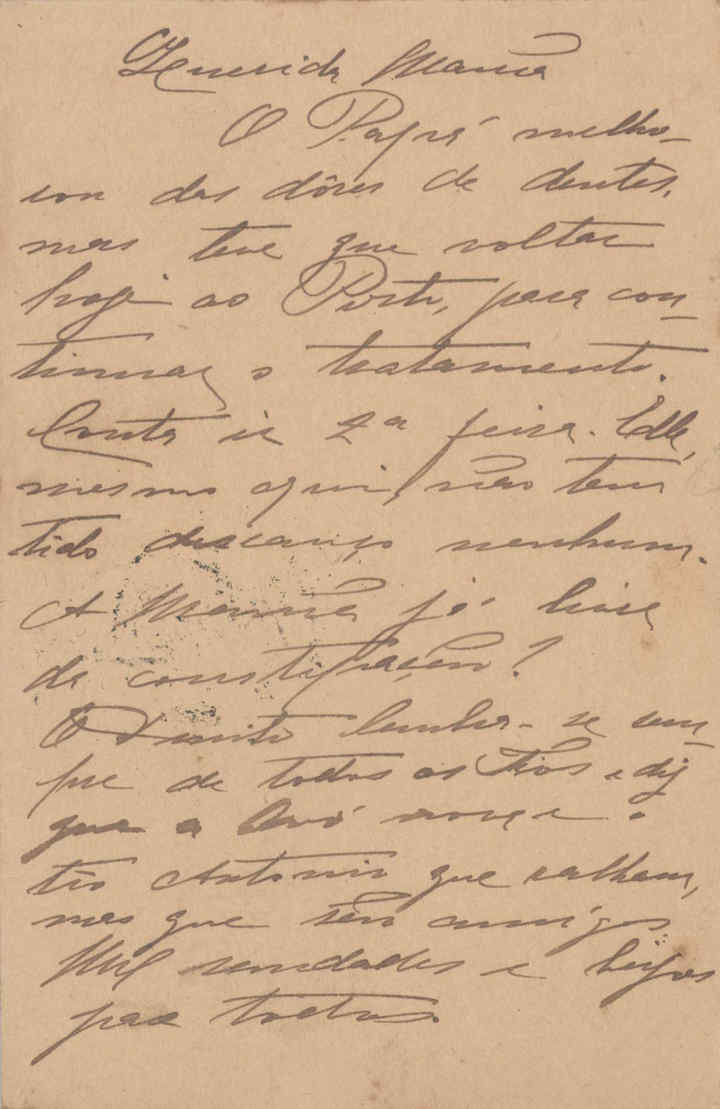 Querida Mamã
O Papá melho-
rou das dôres de dentes,
mas teve que voltar
hoje ao Porto, para con-
tinuar o tratamento.
Conta ir 2ª feira. Elle,
mesmo aqui, não tem
tido descanço nenhum.
A Mamã já livre
da constipação?
O lembra-se sem-
pre de todos os Tios e diz
que a Avó e o
tio Antonio que ralham,
mas que são amigos
Mil saudades e beijos
para todos.